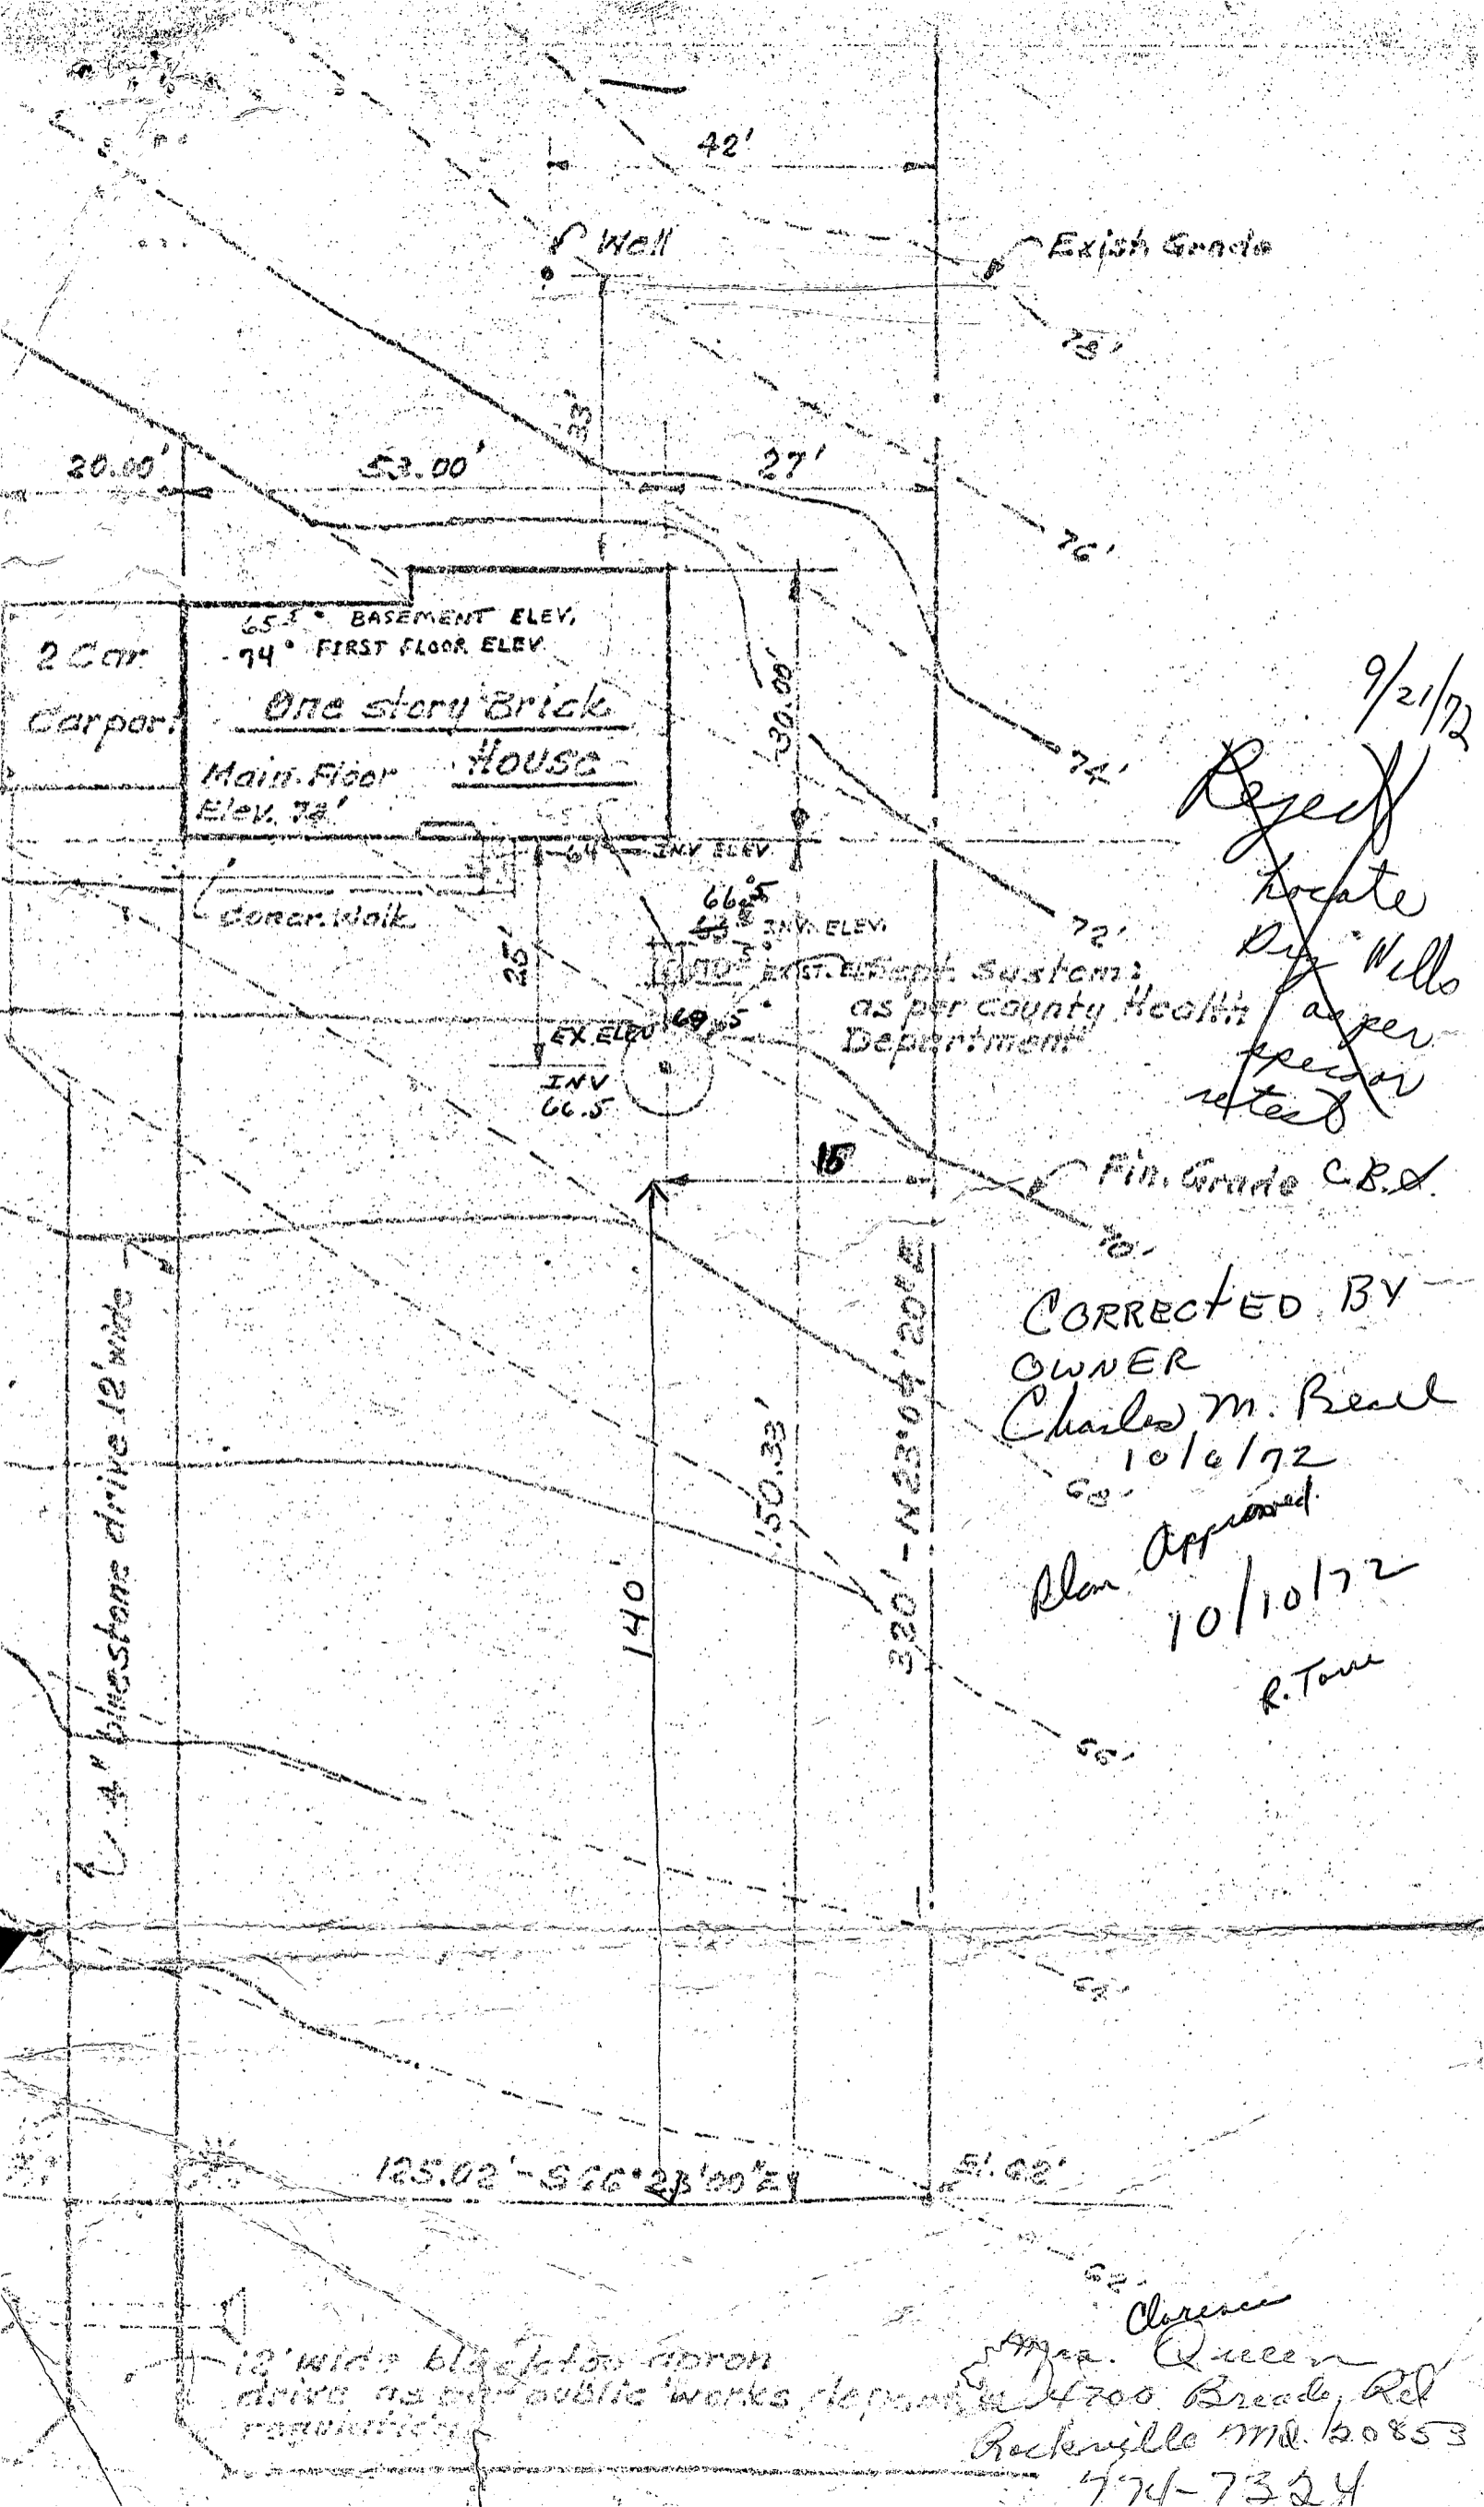 42'
Well
Exist. Grade
78'
33'
20.00'
53.00'
27'
76'
BASEMENT ELEV.
74° FIRST FLOOR ELEV.
2 Car
Carport
One story Brick
House
Main Floor
Elev.
30.00'
74'
9/21/72
Reject
Locate
Dry Wells
as per
retest
64 INV ELEV.
Concr. Walk
66.5
63 INV. ELEV.
72'
25'
EXIST. EL
Sept. System:
as per County Health
Department
EX. ELEV 69.5
INV
66.5
15
Fin. Grade C.B.S.
70'
CORRECTED BY
OWNER
Charles M. Beall
10/6/72
4" bluestone drive 12' wide
140'
150.33'
320' - N23°09'20"E
68'
Plan Approved
10/10/72
66'
125.02' - S66°23'00"E
51.62'
62'
12' wide blacktop apron
drive as per public works
Clarence
Mrs. Queen
Rockville Md. 20853
774-7324